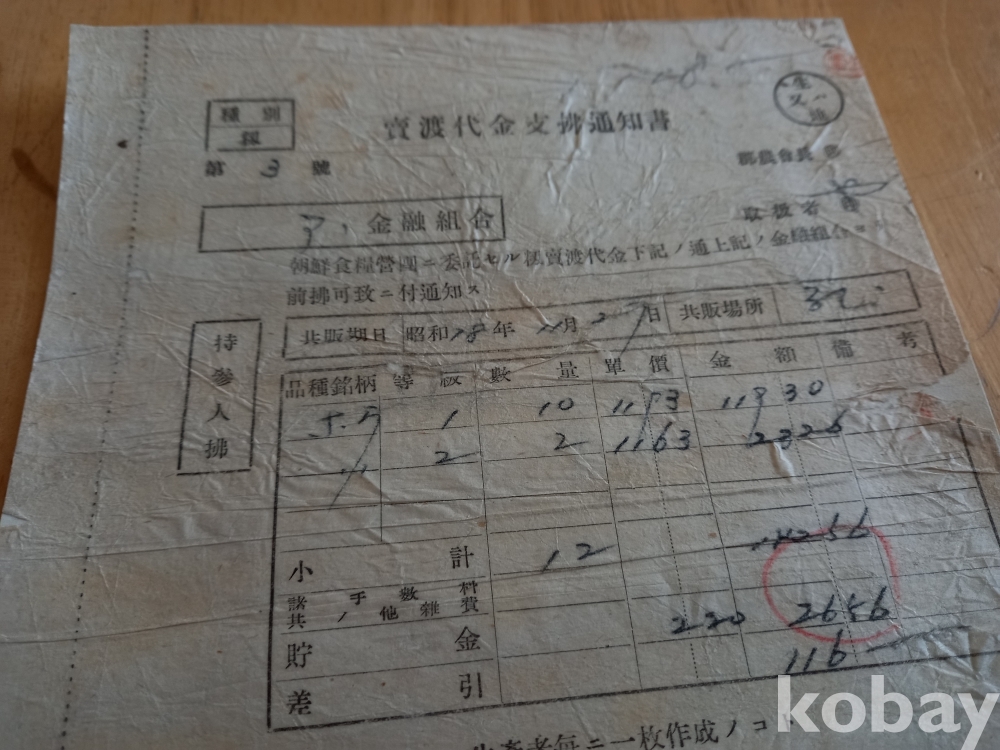 種別
賣渡代金支拂通知書
第 3 號
郡農會長
金融組合
取扱者
朝鮮食糧營團ニ委託セル籾賣渡代金下記ノ通上記ノ金融組合ヨ
前拂可致ニ付通知ス
共販期日 昭和18年11月27日 共販場所
持參人拂
品種銘柄 等級 數量 單價 金額 備考
1 10 1183 118 30
2 2 1163 2326
小計 12 14256
諸手數料
共ノ他雜費
2656
貯金 220
116
差引
生産者毎ニ一枚作成ノコト
kobay